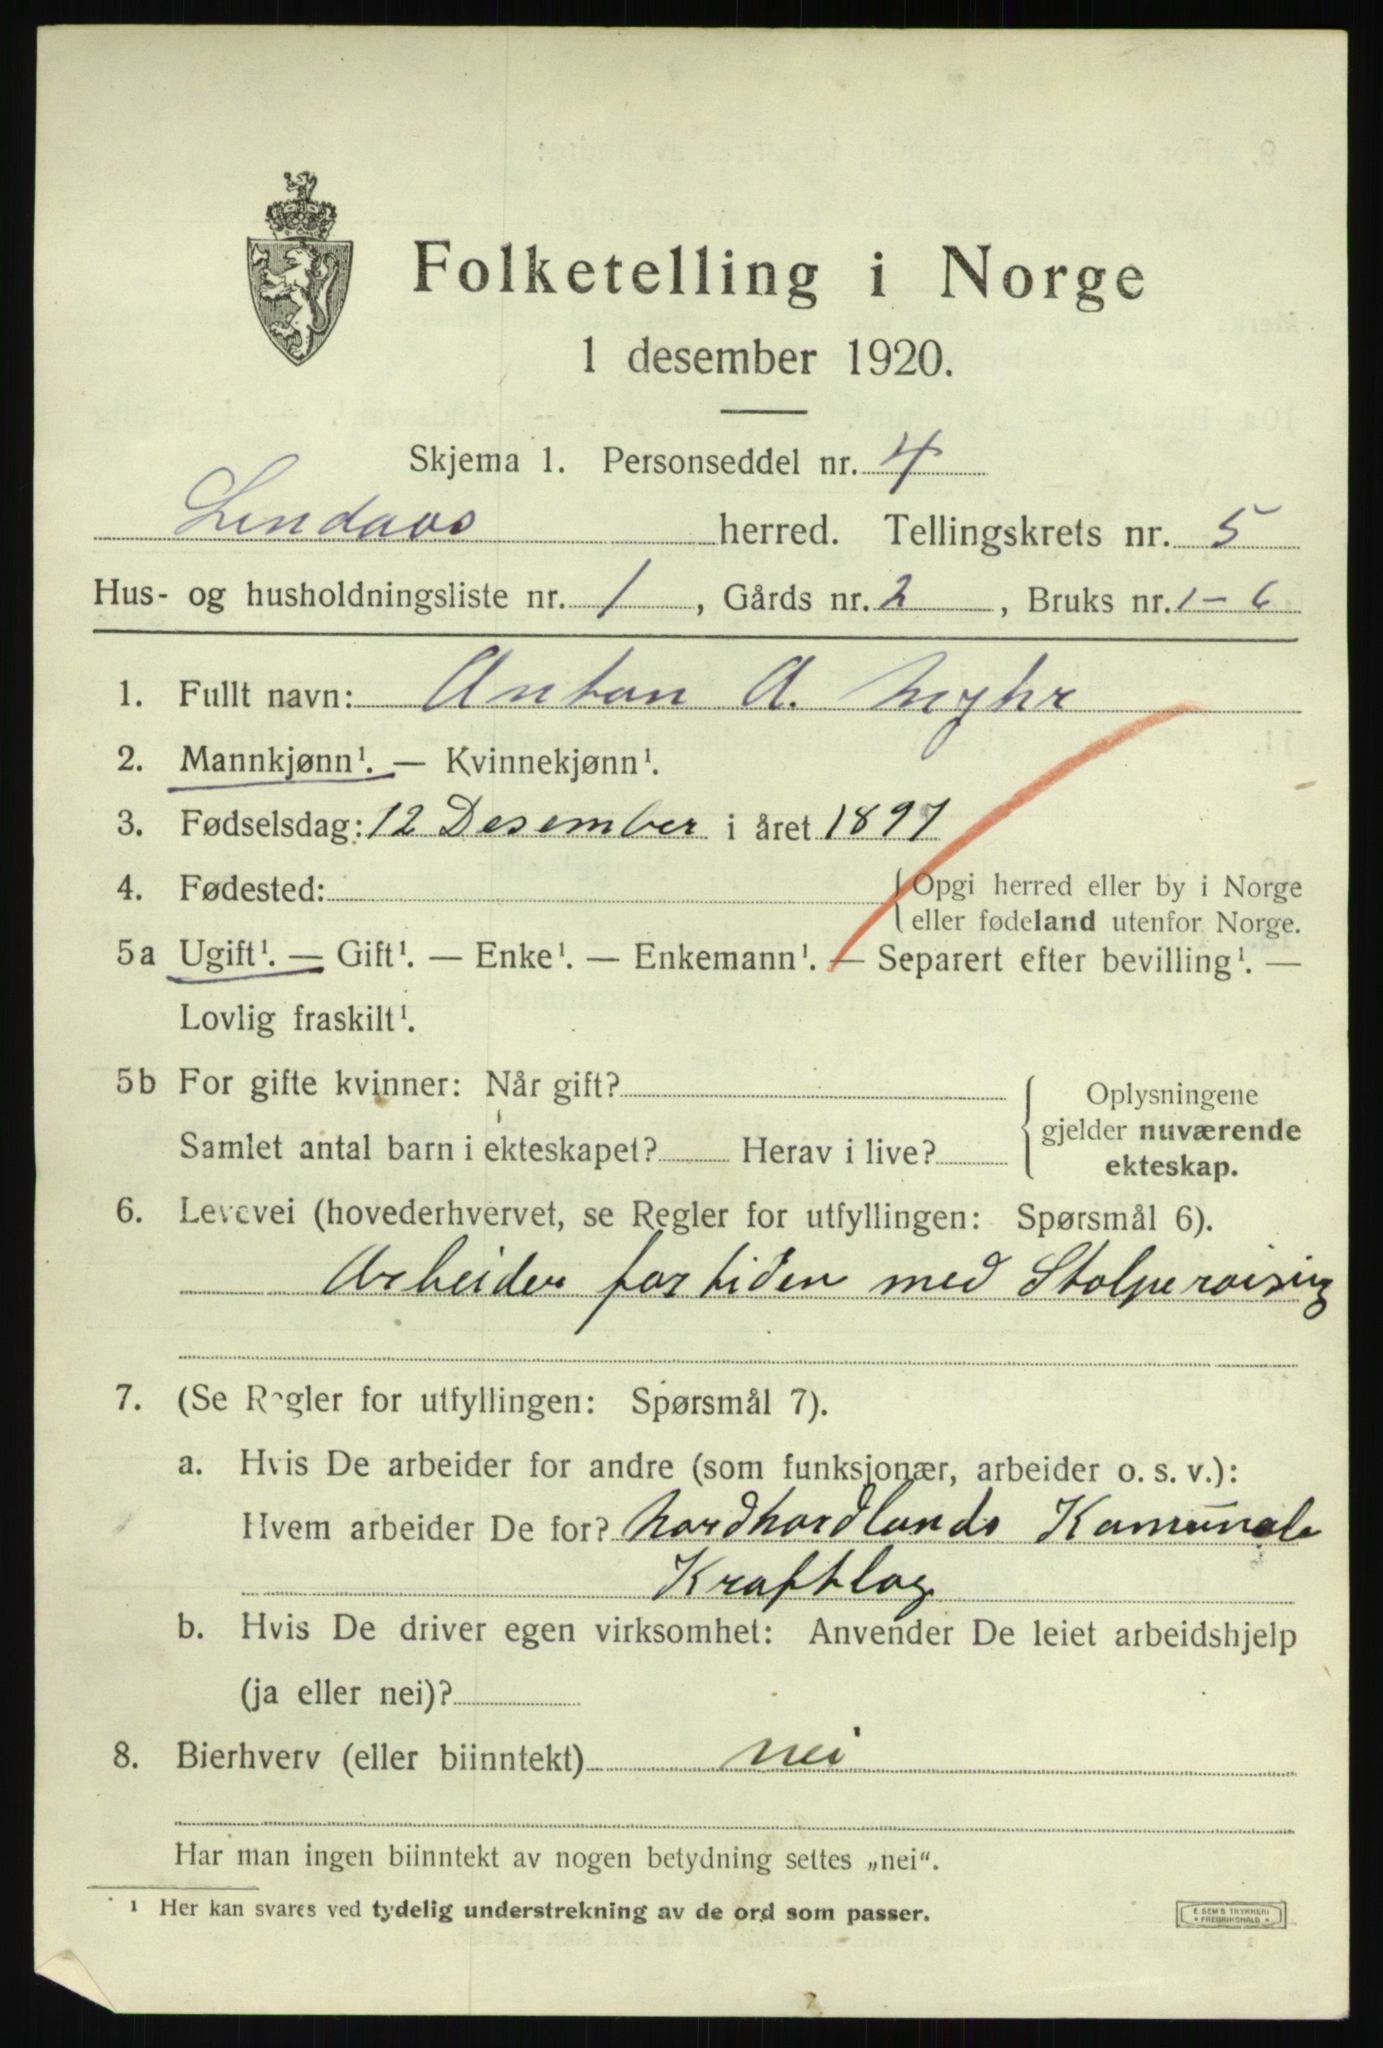 Folketelling i Norge
1 desember 1920.
Skjema 1. Personseddel nr. 4
Lindaas herred. Tellingskrets nr. 5
Hus- og husholdningsliste nr. 1, Gårds nr. 2, Bruks nr. 1-6
1. Fullt navn: Anton A. Myhr
2. Mannkjønn¹. — Kvinnekjønn¹.
3. Fødselsdag: 12 Desember i året 1897
4. Fødested: { Opgi herred eller by i Norge
eller fødeland utenfor Norge.
5a Ugift¹. — Gift¹. — Enke¹. — Enkemann¹. — Separert efter bevilling¹. —
Lovlig fraskilt¹.
5b For gifte kvinner: Når gift?
Samlet antal barn i ekteskapet? Herav i live?
{ Oplysningene
gjelder nuværende
ekteskap.
6. Levevei (hovederhvervet, se Regler for utfyllingen: Spørsmål 6).
Arbeider for tiden med Stolpereising
7. (Se Regler for utfyllingen: Spørsmål 7).
a. Hvis De arbeider for andre (som funksjonær, arbeider o. s. v.):
Hvem arbeider De for? Nordhordlands Kamunale
Kraftlag
b. Hvis De driver egen virksomhet: Anvender De leiet arbeidshjelp
(ja eller nei)?
8. Bierhverv (eller biinntekt) nei
Har man ingen biinntekt av nogen betydning settes „nei“.
¹ Her kan svares ved tydelig understrekning av de ord som passer.
E. SEM'S TRYKKERI
* FREDRIKSHALD *